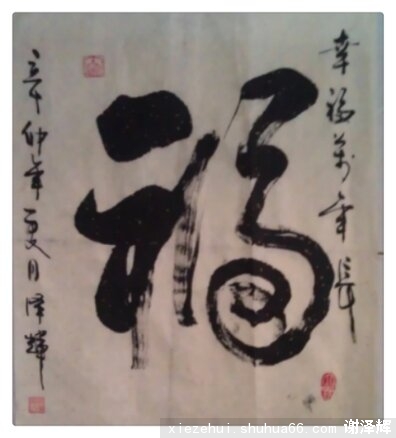 幸福萬年長
福
辛卯年夏月澤輝
xiezehui.shuhua66.com 谢泽辉